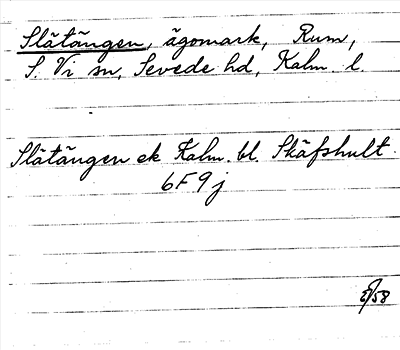 Slätängen, ägomark, Rum,
S. Vi sn, Sevede hd, Kalm. l.
Slätängen ek Kalm. bl. Skäfshult
6F9j
/58